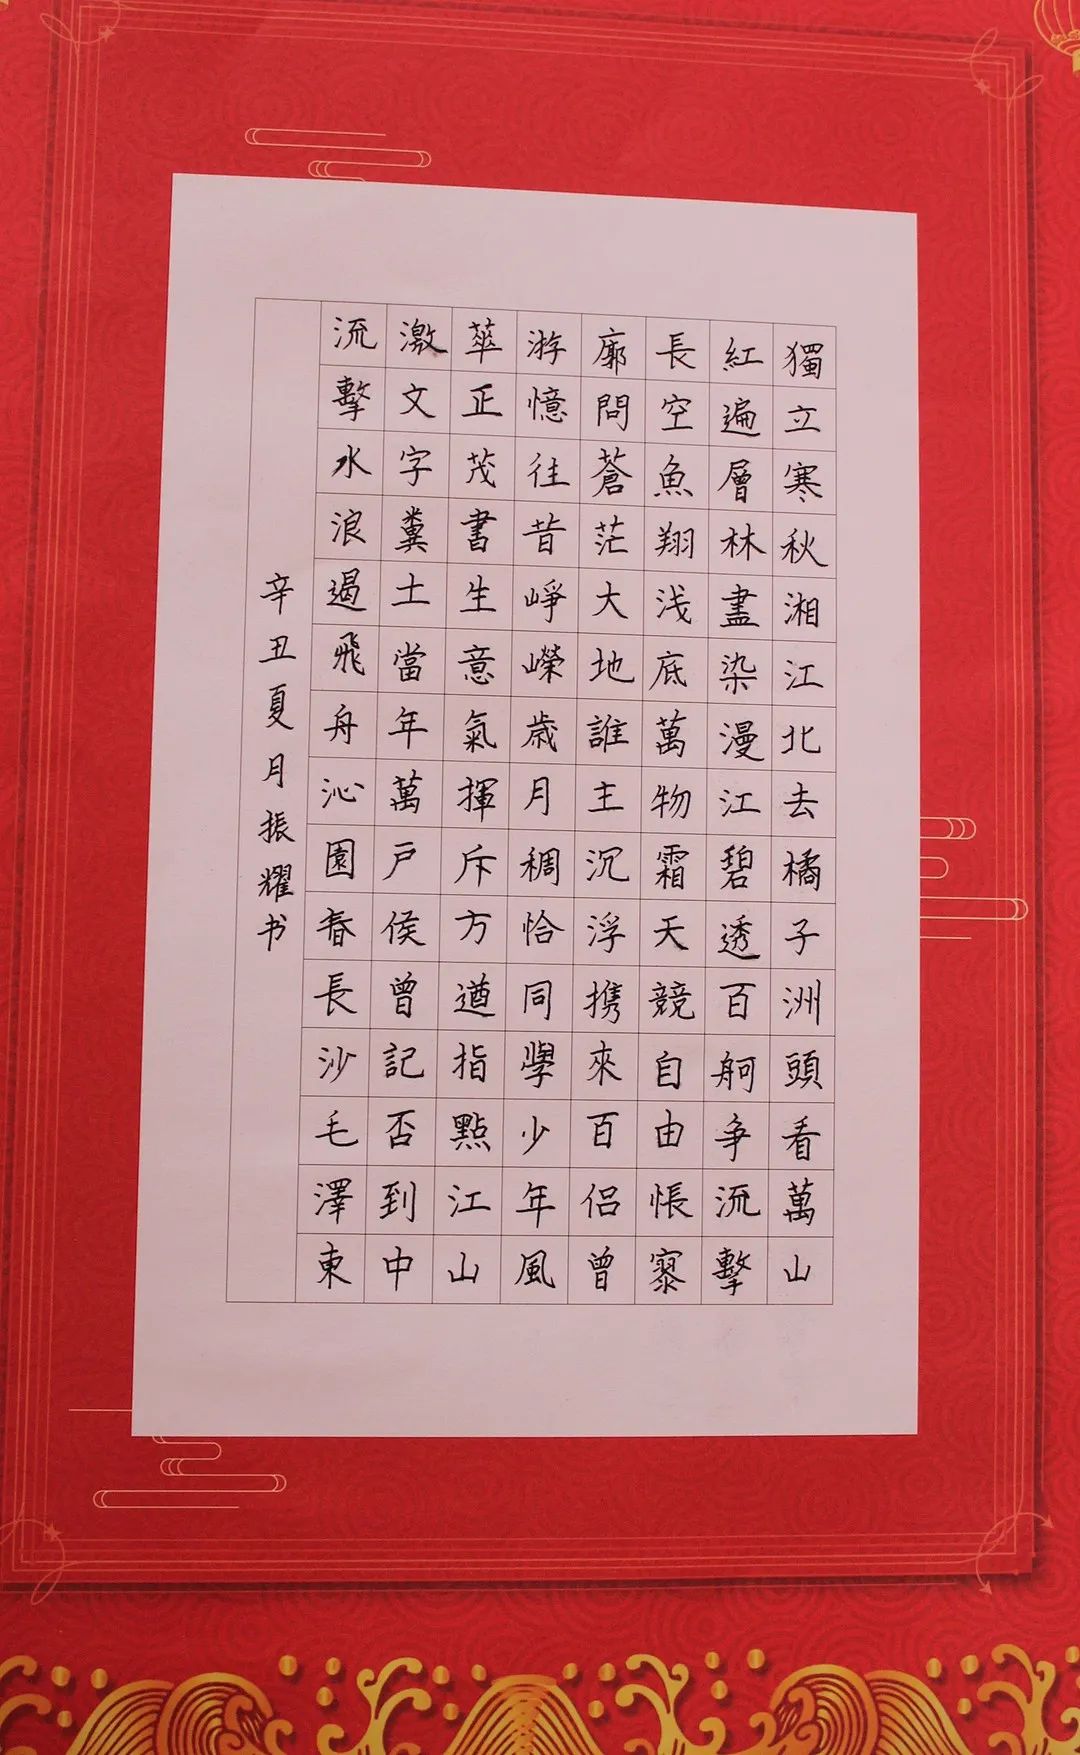 獨立寒秋湘江北去橘子洲頭看萬山
紅遍層林盡染漫江碧透百舸争流擊
長空魚翔浅底萬物霜天競自由悵寥
廓問蒼茫大地誰主沉浮携來百侣曾
游憶往昔崢嶸歲月稠恰同學少年風
華正茂書生意氣揮斥方遒指點江山
激文字糞土當年萬戸侯曾記否到中
流擊水浪遏飛舟沁園春長沙毛澤東
辛丑夏月振耀书